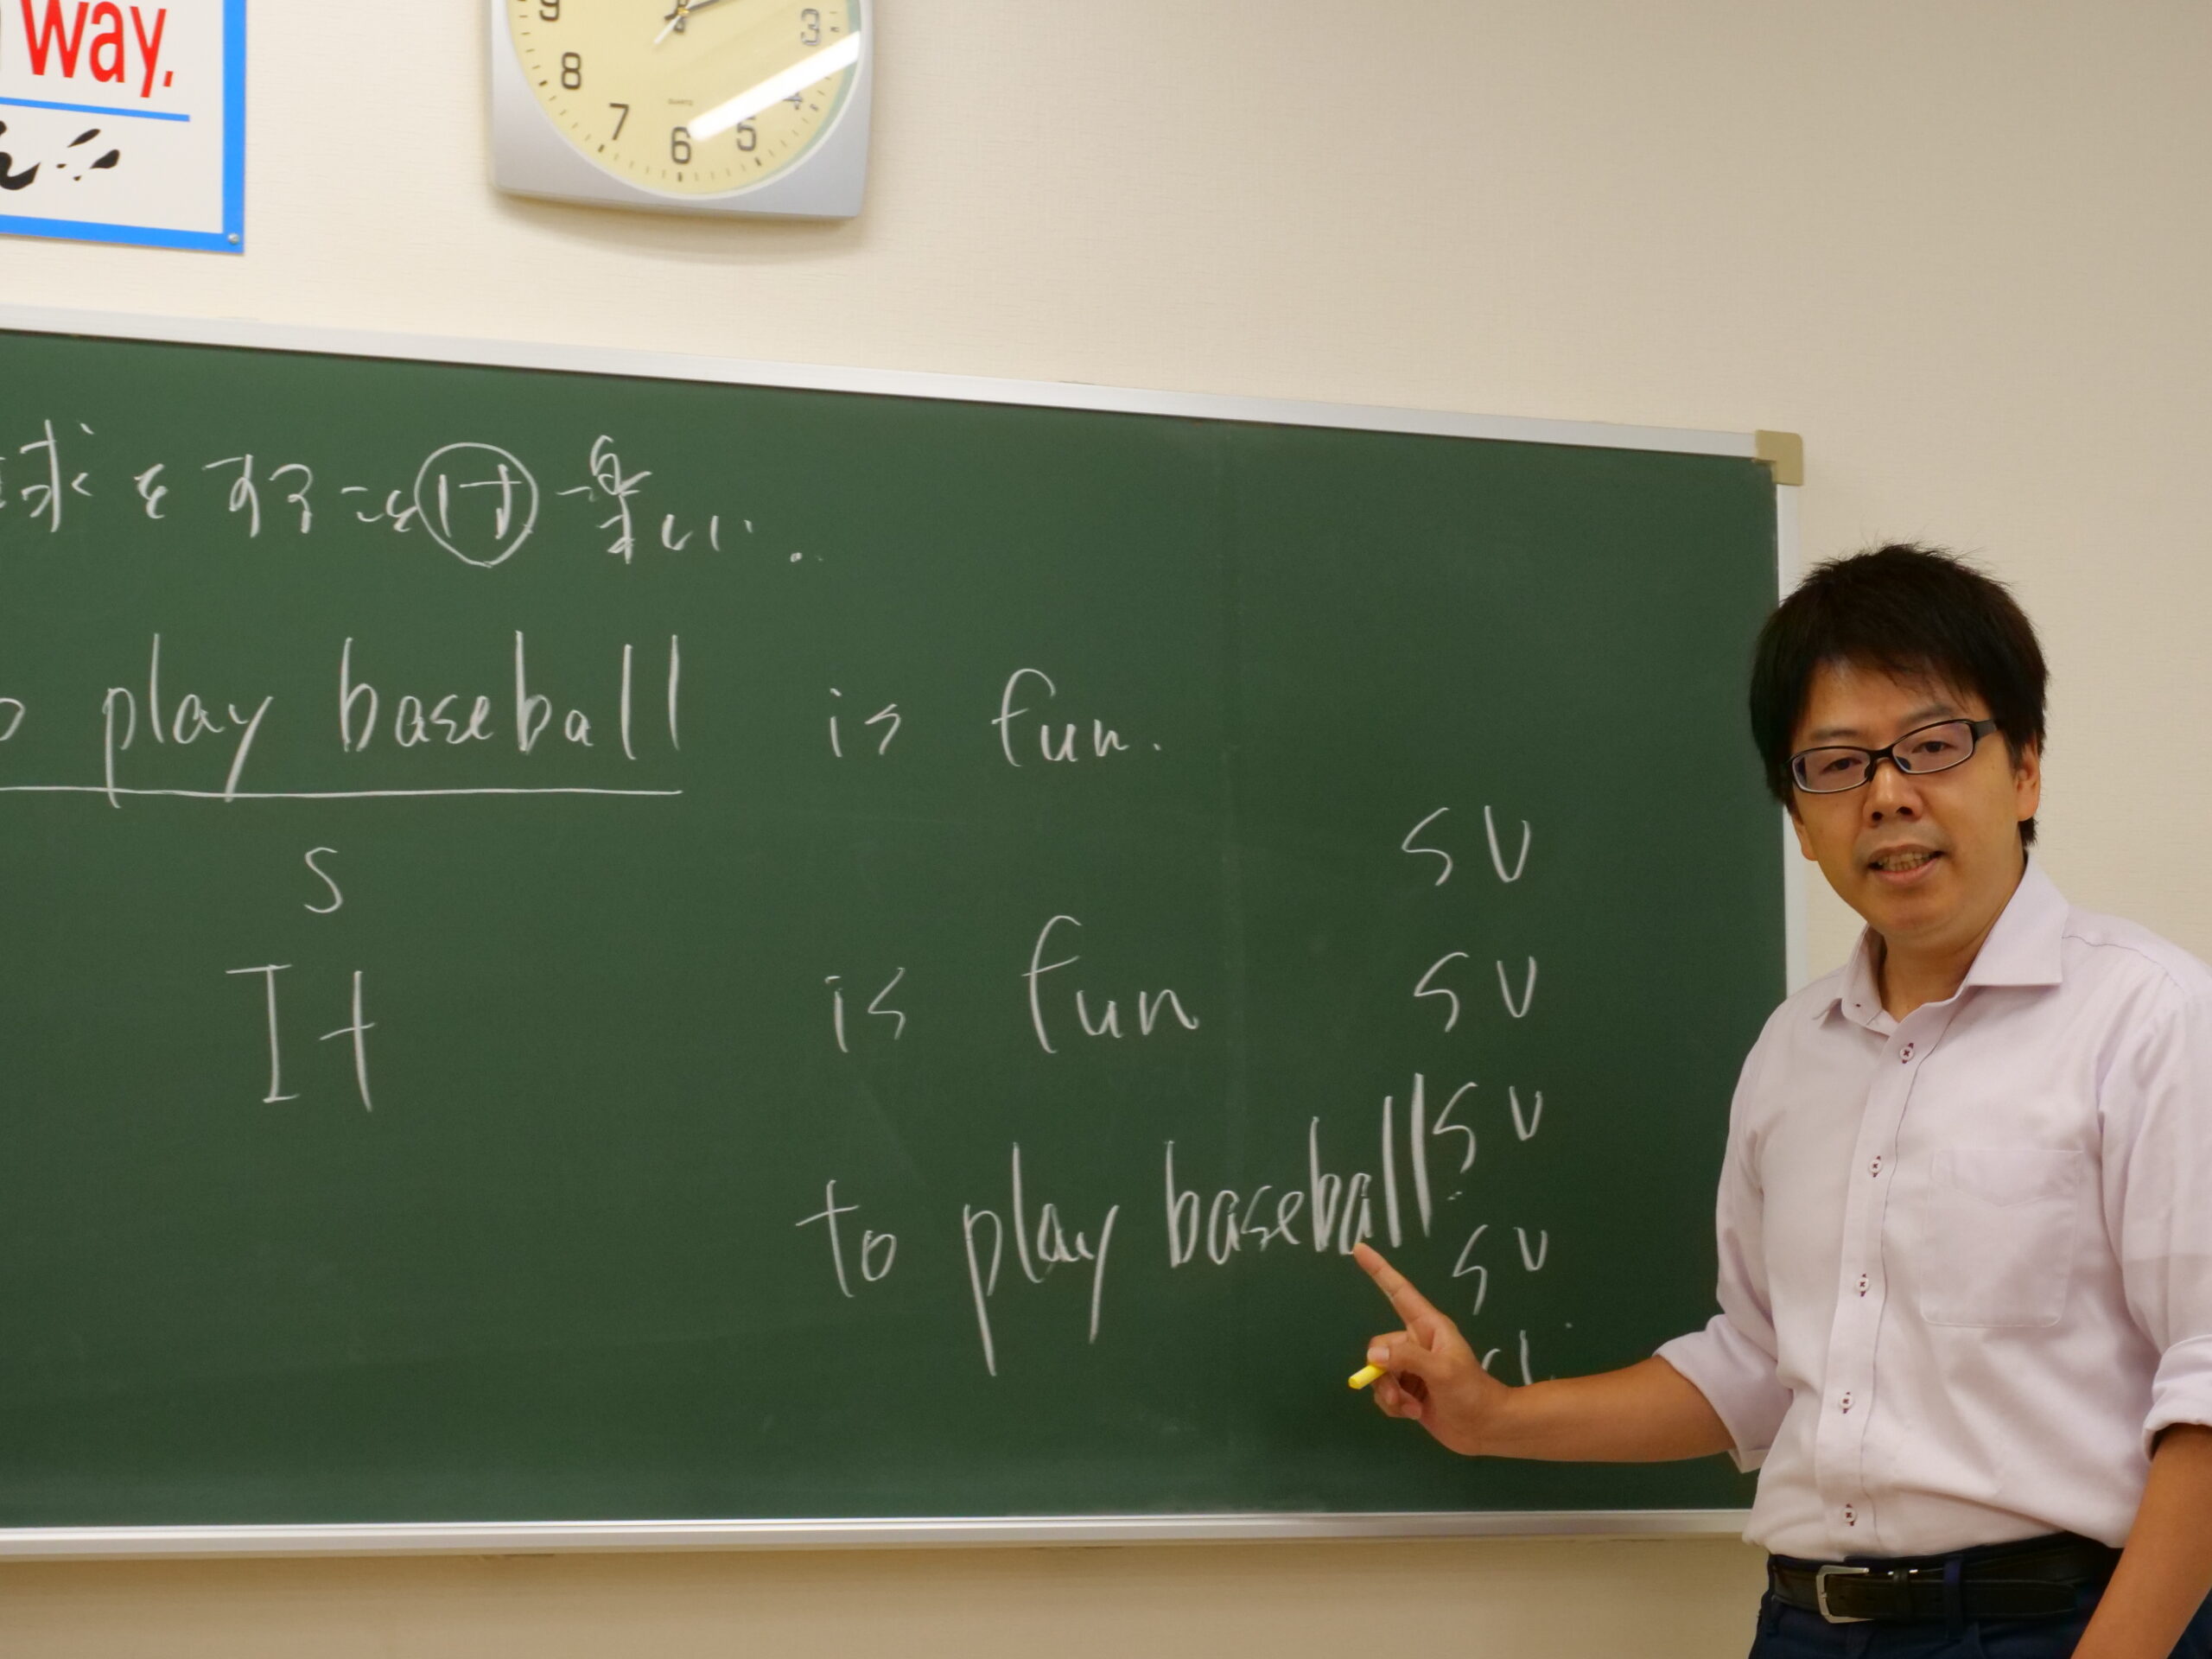 way.
ん!!
9 8 7 6 5 4 3
QUARTZ
球をすることは楽しい.
play baseball is fun.
S
SV
It is fun
SV
to play baseball.
SV
SV